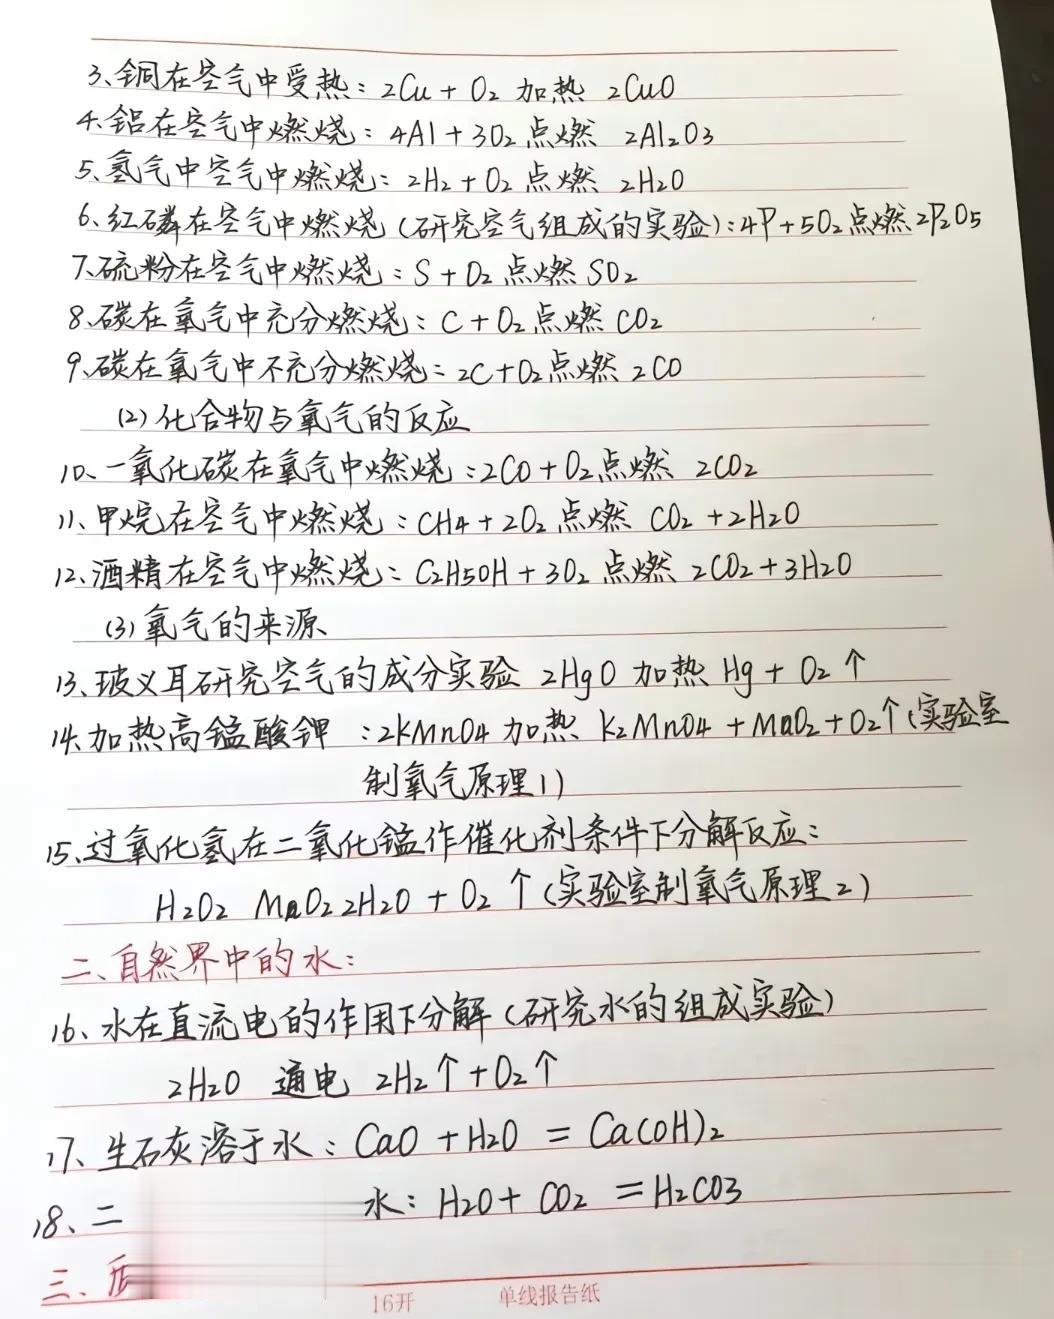 3、铜在空气中受热：2Cu + O2 加热 2CuO
4、铝在空气中燃烧：4Al + 3O2 点燃 2Al2O3
5、氢气中空气中燃烧：2H2 + O2 点燃 2H2O
6、红磷在空气中燃烧（研究空气组成的实验）：4P + 5O2 点燃 2P2O5
7、硫粉在空气中燃烧：S + O2 点燃 SO2
8、碳在氧气中充分燃烧：C + O2 点燃 CO2
9、碳在氧气中不充分燃烧：2C + O2 点燃 2CO
（2）化合物与氧气的反应
10、一氧化碳在氧气中燃烧：2CO + O2 点燃 2CO2
11、甲烷在空气中燃烧：CH4 + 2O2 点燃 CO2 + 2H2O
12、酒精在空气中燃烧：C2H5OH + 3O2 点燃 2CO2 + 3H2O
（3）氧气的来源
13、玻义耳研究空气的成分实验 2HgO 加热 Hg + O2 ↑
14、加热高锰酸钾 ：2KMnO4 加热 K2MnO4 + MnO2 + O2↑（实验室
制氧气原理1）
15、过氧化氢在二氧化锰作催化剂条件下分解反应：
H2O2 MnO2 2H2O + O2 ↑（实验室制氧气原理2）
二、自然界中的水：
16、水在直流电的作用下分解（研究水的组成实验）
2H2O 通电 2H2↑ + O2↑
17、生石灰溶于水：CaO + H2O = Ca(OH)2
18、二 水：H2O + CO2 = H2CO3
三、
16开 单线报告纸